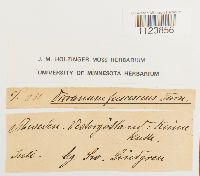 1123856
J. M. HOLZINGER MOSS HERBARIUM
UNIVERSITY OF MINNESOTA HERBARIUM
Dicranum fuscescens Turn.
Sweden. Vestergötland: Kinne
Kulle.
Juli. lg.